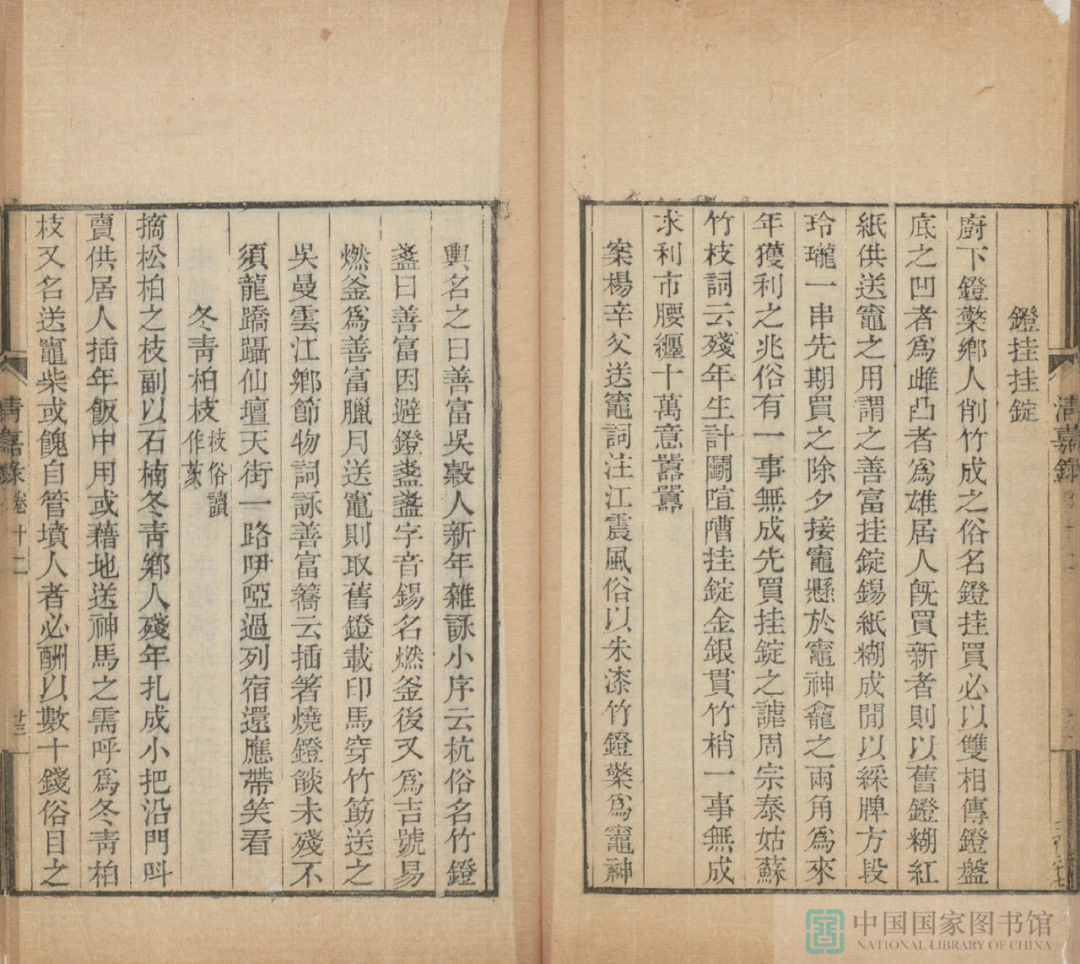 鐙挂挂錠
廚下鐙檠鄉人削竹成之俗名鐙挂買必以雙相傳鐙盤
底之凹者爲雌凸者爲雄居人旣買新者則以舊鐙糊紅
紙供送竈之用謂之善富挂錠錫紙糊成閒以綵牌方段
玲瓏一串先期買之除夕接竈懸於竈神龕之兩角爲來
年獲利之兆俗有一事無成先買挂錠之謔周宗泰姑蘇
竹枝詞云殘年生計鬭喧嘈挂錠金銀貫竹梢一事無成
求利市腰纏十萬意囂囂
案楊辛父送竈詞注江震風俗以朱漆竹鐙檠爲竈神
輿名之曰善富吳穀人新年雜詠小序云杭俗名竹鐙
盞曰善富因避鐙盞盞字音錫名燃釜後又爲吉號易
燃釜爲善富臘月送竈則取舊鐙載印馬穿竹筯送之
吳曼雲江鄉節物詞詠善富簥云插箸燒鐙燄未殘不
須龍蹻躡仙壇天街一路吚啞過列宿還應帶笑看
冬靑柏枝枝俗讀作蒃
摘松柏之枝副以石楠冬靑鄉人殘年扎成小把沿門呌
賣供居人插年飯中用或藉地送神馬之需呼爲冬靑柏
枝又名送竈柴或餽自管墳人者必酬以數十錢俗目之
清嘉錄 卷十二 廿三
中国国家图书馆
NATIONAL LIBRARY OF CHINA